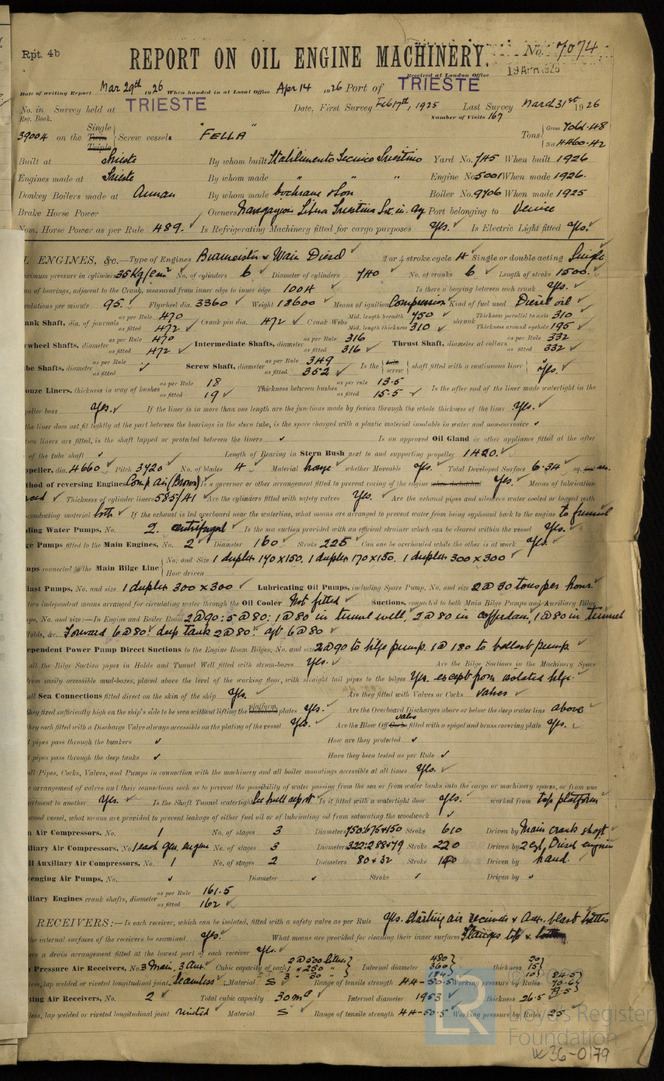 Rpt. 4b
REPORT ON OIL ENGINE MACHINERY.
No. 7074
Received at London Office
19 APR 1926
Date of writing Report Mar 29th 1926 When handed in at Local Office Apr 14 1926 Port of TRIESTE
No. in Survey held at TRIESTE Date, First Survey Feb 17th, 1925 Last Survey March 31st 1926
Reg. Book. Number of Visits 167
39004 on the Single Twin Triple Screw vessels "FELLA" Tons Gross 7062.48 Net 4460.42
Built at Trieste By whom built Stabilimento Tecnico Triestino Yard No. 745 When built 1926
Engines made at Trieste By whom made " " " Engine No. 5001 When made 1926.
Donkey Boilers made at Annan By whom made Cochrane & Son Boiler No. 9706 When made 1925
Brake Horse Power Owners Port belonging to Venice
Nom. Horse Power as per Rule 489. Is Refrigerating Machinery fitted for cargo purposes Yes. Is Electric Light fitted Yes.
L ENGINES, &c.—Type of Engines Burmeister & Wain Diesel 2 or 4 stroke cycle 4 Single or double acting Single
ximum pressure in cylinders 35 Kg/cm² No. of cylinders 6 Diameter of cylinders 740 No. of cranks 6 Length of stroke 1500.
n of bearings, adjacent to the Crank, measured from inner edge to inner edge 1004 Is there a bearing between each crank Yes.
volutions per minute 95. Flywheel dia. 3360 Weight 18600 Means of ignition Compression Kind of fuel used Diesel oil
ank Shaft, dia. of journals as per Rule 470 as fitted 472 Crank pin dia. 472 Crank Webs Mid. length breadth 750 Mid. length thickness 310 shrunk Thickness parallel to axis 310 Thickness around eyehole 195
wheel Shafts, diameter as per Rule 470 as fitted 472 Intermediate Shafts, diameter as per Rule 316 as fitted 316 Thrust Shaft, diameter at collars as per Rule 332 as fitted 332
be Shafts, diameter as per Rule as fitted Screw Shaft, diameter as per Rule 349 as fitted 352 Is the tube screw shaft fitted with a continuous liner Yes.
onze Liners, thickness in way of bushes as per Rule 18 as fitted 19 Thickness between bushes as per rule 13.5 as fitted 15.5 Is the after end of the liner made watertight in the
peller boss Yes. If the liner is in more than one length are the junctions made by fusion through the whole thickness of the liner Yes.
the liner does not fit tightly at the part between the bearings in the stern tube, is the space charged with a plastic material insoluble in water and non-corrosive
two liners are fitted, is the shaft lapped or protected between the liners Is an approved Oil Gland or other appliance fitted at the after
of the tube shaft Length of Bearing in Stern Bush next to and supporting propeller 1420.
opeller, dia. 4660 Pitch 3720 No. of blades 4 Material bronze whether Moveable Yes. Total Developed Surface 6.34 sq.
thod of reversing Engines Comp air (Brown) Is a governor or other arrangement fitted to prevent racing of the engine Yes. Means of lubrication
Thickness of cylinder liners 585/41 Are the cylinders fitted with safety valves Yes. Are the exhaust pipes and silencers water cooled or lagged with
conducting material both If the exhaust is led overboard near the waterline, what means are arranged to prevent water from being syphoned back to the engine to funnel
ling Water Pumps, No. 2. centrifugal Is the sea suction provided with an efficient strainer which can be cleared within the vessel Yes.
ge Pumps fitted to the Main Engines, No. 2 Diameter 160 Stroke 225 Can one be overhauled while the other is at work Yes.
mps connected to the Main Bilge Line No. and Size 1 duplex 140×150, 1 duplex 170×150. 1 duplex 300×300
How driven
llast Pumps, No. and size 1 duplex 300×300 Lubricating Oil Pumps, including Spare Pump, No. and size 2 @ 80 tons per hour
two independent means arranged for circulating water through the Oil Cooler Not fitted Suctions, connected to both Main Bilge Pumps and Auxiliary Bilge
ps, No. and size:—In Engine and Boiler Room 2 @ 90: 5 @ 80: 1 @ 80 in tunnel well, 2 @ 80 in cofferdam, 1 @ 80 in tunnel
Holds, &c. Forward 6 @ 80 deep tank 2 @ 80: aft 6 @ 80
ependent Power Pump Direct Suctions to the Engine Room Bilges, No. and size 2 @ 90 to bilge pump. 1 @ 180 to ballast pump
all the Bilge Suction pipes in Holds and Tunnel Well fitted with strum-boxes Yes. Are the Bilge Suctions in the Machinery Space
from easily accessible mud-boxes, placed above the level of the working floor, with straight tail pipes to the bilges Yes. except from isolated bilge.
all Sea Connections fitted direct on the skin of the ship Yes. Are they fitted with Valves or Cocks valves
they fixed sufficiently high on the ship's side to be seen without lifting the platform plates Yes. Are the Overboard Discharges above or below the deep water line above
they each fitted with a Discharge Valve always accessible on the plating of the vessel Yes. Are the Blow Off valve fitted with a spigot and brass covering plate Yes.
t pipes pass through the bunkers How are they protected
t pipes pass through the deep tanks Have they been tested as per Rule
all Pipes, Cocks, Valves, and Pumps in connection with the machinery and all boiler mountings accessible at all times Yes.
e arrangement of valves and their connections such as to prevent the possibility of water passing from the sea or from water tanks into the cargo or machinery spaces, or from one
artment to another Yes. Is the Shaft Tunnel watertight See hull report Is it fitted with a watertight door Yes. worked from top platform
wood vessel, what means are provided to prevent leakage of either fuel oil or of lubricating oil from saturating the woodwork
in Air Compressors, No. 1 No. of stages 3 Diameters 750:675:150 Stroke 610 Driven by Main crank shaft
iliary Air Compressors, No. 1 each gen. engine No. of stages 3 Diameters 322:288:79 Stroke 220 Driven by 2 cyl. Diesel engine
ll Auxiliary Air Compressors, No. 1 No. of stages 2 Diameters 80 & 32 Stroke 140 Driven by hand.
venging Air Pumps, No. Diameter Stroke Driven by
iliary Engines crank shafts, diameter as per Rule 161.5 as fitted 162
RECEIVERS:—Is each receiver, which can be isolated, fitted with a safety valve as per Rule Yes. Starting air receivers & Aux. blast bottles
the internal surfaces of the receivers be examined Yes. What means are provided for cleaning their inner surfaces Flanges top & bottom
ere a drain arrangement fitted at the lowest part of each receiver Yes.
Pressure Air Receivers, No. 3 Main, 3 Aux. Cubic capacity of each 2 @ 520 litres 1 " 250 " Internal diameter 480 360 184 thickness
less, lap welded or riveted longitudinal joint Seamless Material S Range of tensile strength 44-50.5
ting Air Receivers, No. 2 Total cubic capacity 30 m³ Internal diameter 1953 thickness 26.5
less, lap welded or riveted longitudinal joint riveted Material S Range of tensile strength 44-50.5 Working pressure by Rules 25.
LR Lloyd's Register Foundation
W36-0179